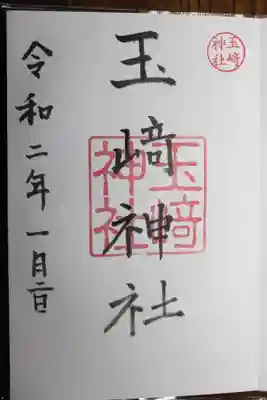 玉﨑
神社
玉﨑神社
玉﨑
神社
令和二年一月日